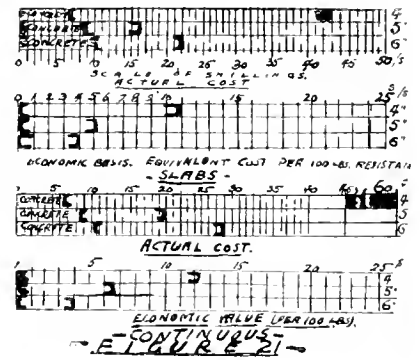 CONCRETE 4"
CONCRETE 5"
CONCRETE 6"
0 5 10 15 20 25 30 35 40 45 50/s
SCALE OF SHILLINGS.
ACTUAL COST
0 1 2 3 4 5 6 7 8 9 10 15 20 25/s
4"
5"
6"
ECONOMIC BASIS. EQUIVALENT COST PER 100 LBS. RESISTA
- SLABS -
0 5 10 15 20 25 30 40 60
CONCRETE 4
CONCRETE 5
CONCRETE 6
ACTUAL COST.
5 10 15 20 25/s
4
5"
6"
ECONOMIC VALUE (PER 100 LBS).
- CONTINUOUS -
- FIGURE 21 -